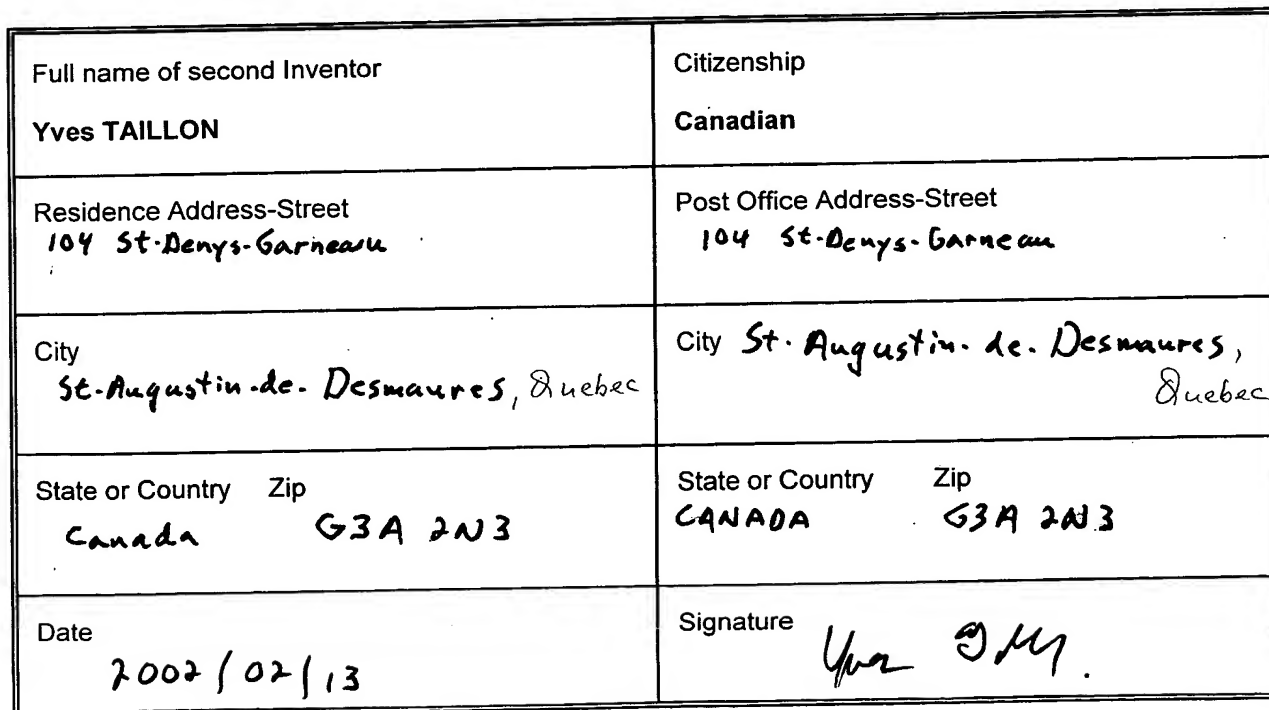 Full name of second Inventor
Yves TAILLON
Citizenship
Canadian
Residence Address-Street
104 St-Denys-Garneau
Post Office Address-Street
104 St-Denys-Garneau
City
St-Augustin-de-Desmaures, Quebec
City St-Augustin-de-Desmaures,
Quebec
State or Country Zip
Canada G3A 2N3
State or Country Zip
CANADA G3A 2N3
Date
2002/02/13
Signature